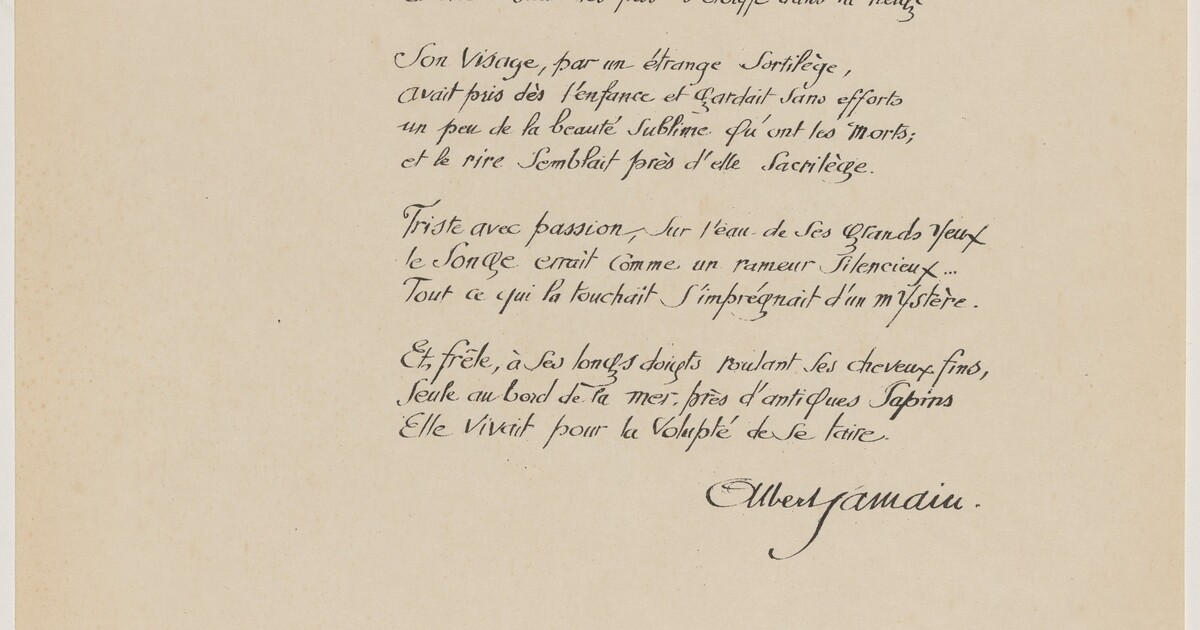 dans la neige
Son Visage, par un étrange Sortilège,
avait pris dès l'enfance et gardait sans efforts
un peu de la beauté Sublime qu'ont les Morts;
et le rire Semblait près d'elle Sacrilège.
Triste avec passion, Sur l'eau de Ses grands yeux
le Songe errait Comme un rameur Silencieux...
Tout ce qui la touchait S'imprégnait d'un mystère.
Et, frêle, à Ses longs doigts roulant Ses cheveux fins,
Seule au bord de la mer, près d'antiques Sapins
Elle Vivait pour la Volupté de Se taire.
Albert Samain.